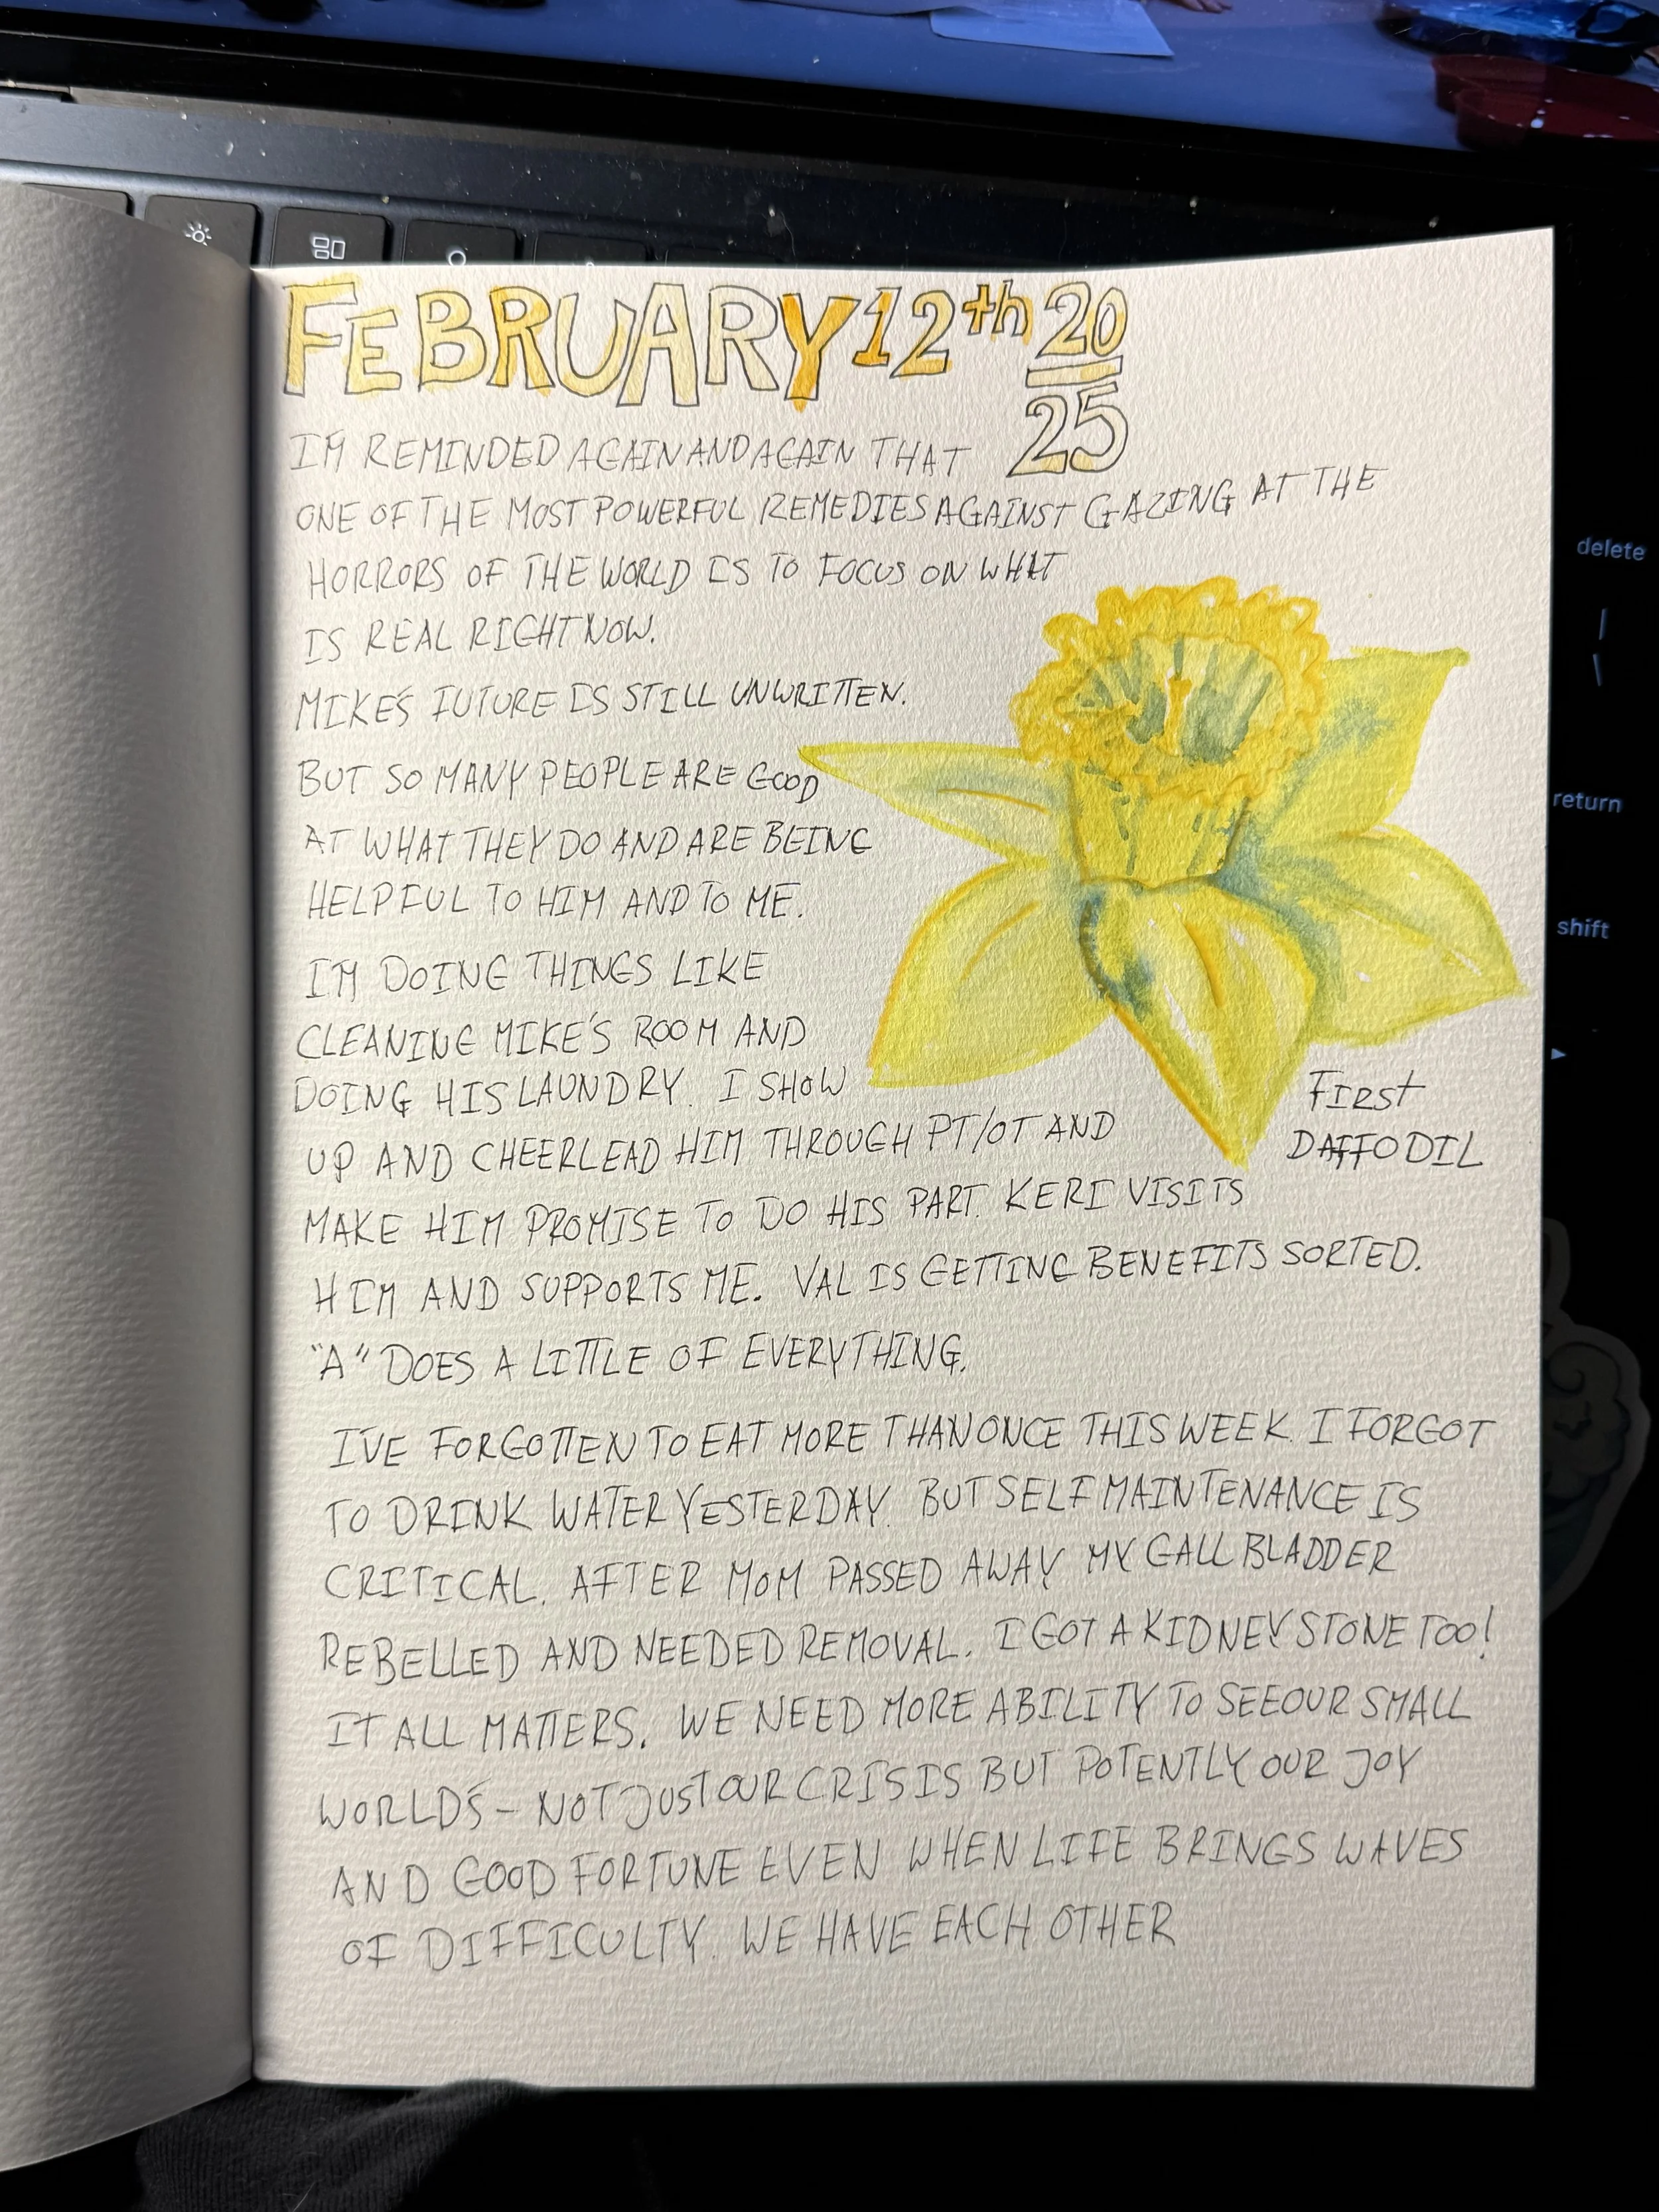 FEBRUARY 12th 20
25
I'M REMINDED AGAIN AND AGAIN THAT
ONE OF THE MOST POWERFUL REMEDIES AGAINST GAZING AT THE
HORRORS OF THE WORLD IS TO FOCUS ON WHAT
IS REAL RIGHT NOW.
MIKE'S FUTURE IS STILL UNWRITTEN.
BUT SO MANY PEOPLE ARE GOOD
AT WHAT THEY DO AND ARE BEING
HELPFUL TO HIM AND TO ME.
I'M DOING THINGS LIKE
CLEANING MIKE'S ROOM AND
DOING HIS LAUNDRY. I SHOW
UP AND CHEERLEAD HIM THROUGH PT/OT AND
MAKE HIM PROMISE TO DO HIS PART. KERI VISITS
HIM AND SUPPORTS ME. VAL IS GETTING BENEFITS SORTED.
"A" DOES A LITTLE OF EVERYTHING.
I'VE FORGOTTEN TO EAT MORE THAN ONCE THIS WEEK. I FORGOT
TO DRINK WATER YESTERDAY. BUT SELF MAINTENANCE IS
CRITICAL. AFTER MOM PASSED AWAY MY GALL BLADDER
REBELLED AND NEEDED REMOVAL. I GOT A KIDNEY STONE TOO!
IT ALL MATTERS. WE NEED MORE ABILITY TO SEE OUR SMALL
WORLDS - NOT JUST OUR CRISIS BUT POTENTLY OUR JOY
AND GOOD FORTUNE EVEN WHEN LIFE BRINGS WAVES
OF DIFFICULTY. WE HAVE EACH OTHER
FIRST
DAFFODIL
delete
return
shift